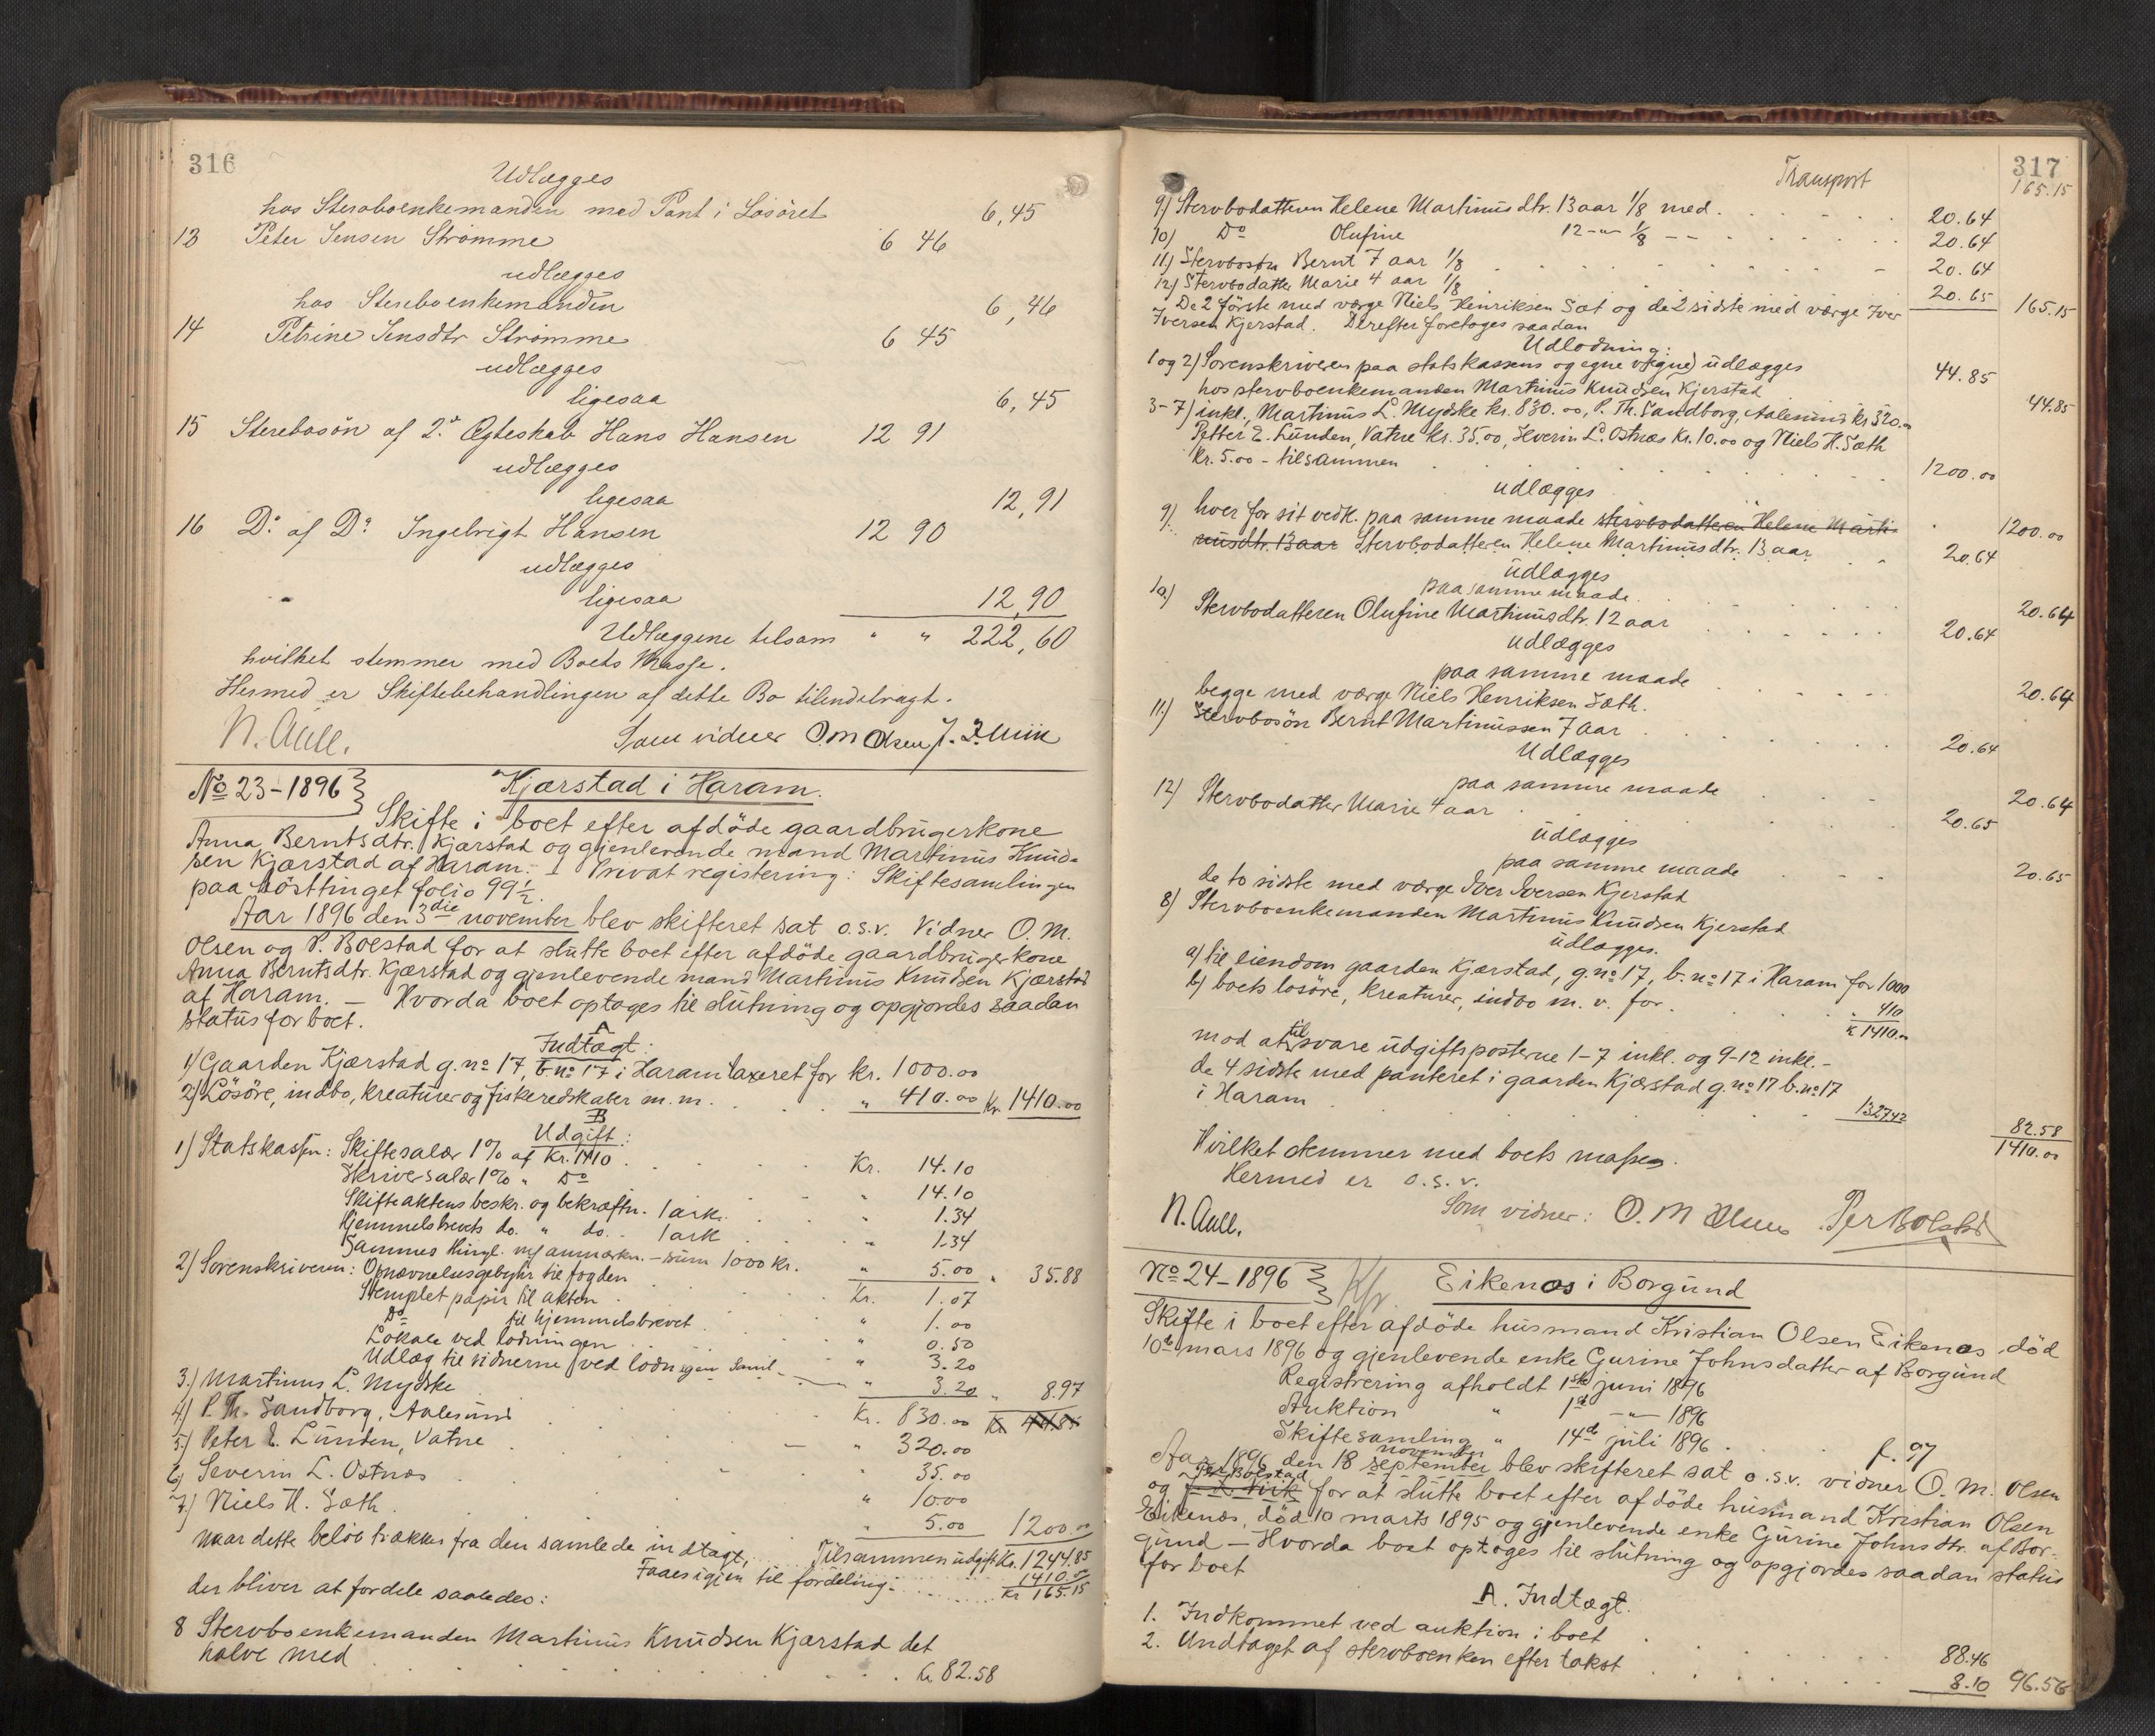 316
Udlægges
hos Sterboenkemanden med Pant i Løsöret 6,45
13 Peter Jensen Strömme 6 46
udlægges
hos Sterboenkemanden 6,46
14 Petrine Jensdtr Strömme 6 45
udlægges
ligesaa 6,45
15 Sterbosön af 2.det Ægteskab Hans Hansen 12 91
udlægges
ligesaa 12,91
16 Do af Do Ingebrigt Hansen 12 90
udlægges
ligesaa 12,90
Udlæggene tilsam " " 222,60
hvilket stemmer med Boets Masse.
Hermed er Skiftebehandlingen af dette Bo tilendebragt.
N. Aall. Som vidner O. M Olsen J. J. Miik
No 23-1896 Kjærstad i Haram.
Skifte i boet efter afdöde gaardbrugerkone
Anna Berntsdtr. Kjærstad og gjenlevende mand Martinus Knud-
sen Kjærstad af Haram. - Privat registering: Skiftesamlingen
paa hösttinget folio 99½.
Aar 1896 den 3die november blev skifteret sat o.s.v. Vidner O. M.
Olsen og P. Bolstad for at slutte boet efter afdöde gaardbrugerkone
Anna Berntsdtr. Kjærstad og gjenlevende mand Martinus Knudsen Kjærstad
af Haram. - Hvorda boet optoges til slutning og opgjordes saadan
status for boet.
A
Indtægt:
1) Gaarden Kjærstad g.no 17, b.no 17 i Haram taxeret for kr. 1000.00
2) Lösöre, indbo, kreaturer og fiskeredskaber m.m. " 410.00 Kr. 1410.00
B
Udgift:
1) Statskassen: Skiftesalær 1% af Kr. 1410 Kr. 14.10
Skriversalær 1% " Do " 14.10
Skifteaktens beskr. og bekræftn. 1 ark. " 1.34
Hjemmelsbrevets do. " do. - 1 ark " 1.34
Sammes thingl. m/ anmærkn. - sum 1000 kr. " 5.00 " 35.88
2) Sorenskriveren: Opnævnelsesgebyhr til fogden Kr. 1.07
Stemplet papir til akten " 1.00
Do til hjemmelsbrevet " 0.50
Lokale ved lodningen " 3.20
Udlæg til vidnerne ved lodningen " 3.20 " 8.97
3.) Martinus L. Mydske Kr. 830.00 Kr. 44.85
4) P. Th. Sandborg, Aalesund " 320.00
5.) Peter E. Lunden, Vatne " 35.00
6) Severin L. Ostnæs " 10.00
7) Niels H. Sæth " 5.00 1200.00
Tilsammen udgift Kr. 1244.85
Naar dette belöb trækkes fra den samlede indtægt, 1410.00
Faaes igjen til fordeling: Kr 165.15
der bliver at fordele saaledes:
8 Stervboenkemanden Martinus Knudsen Kjærstad det
halve med Kr. 82.58
317
Transport 165.15
9) Stervbodatteren Helene Martinusdtr. 13 aar 1/8 med 20.64
10) Do Olufine 12 -"- 1/8 -- 20.64
11) Stervbosön Bernt 7 aar 1/8 20.64
12) Stervbodatter Marie 4 aar 1/8 20.65 165.15
De 2 förste med værge Niels Henriksen Sæt og de 2 sidste med værge Iver
Iversen Kjerstad. Derefter foretoges saadan
Udlodning:
1 og 2) Sorenskriveren paa statskassens og egne vegne) udlægges 44.85
hos stervboenkemanden Martinus Knudsen Kjerstad 44.85
3-7) inkl., Martinus L. Mydske kr. 830.00, P. Th. Sandborg, Aalesund kr 320.00
Petter E. Lunden, Vatne kr. 35.00, Severin L. Ostnæs kr. 10.00 og Niels H. Sæth
kr. 5.00 - tilsammen 1200.00
udlægges
hver for sit vedk. paa samme maade stervbodatteren Helene Marti- 1200.00
9) nusdtr. 13 aar Stervbodatteren Helene Martinusdtr. 13 aar 20.64
udlægges
paa samme maade 20.64
10.) Stervbodatteren Olufine Martinusdtr. 12 aar 20.64
udlægges
paa samme maade 20.64
begge med værge Niels Henriksen Sæth.
11.) Stervbosön Bernt Martinussen 7 aar 20.64
Udlægges
paa samme maade 20.64
12) Stervbodatter Marie 4 aar 20.65
udlægges
paa samme maade 20.65
de to sidste med værge Iver Iversen Kjerstad
8) Stervboenkemanden Martinus Knudsen Kjerstad
udlægges.
a) til eiendom gaarden Kjærstad, g.no 17, b.no 17 i Haram for 1000
b) boets lösöre, kreaturer, indbo m. v. for " 410
K 1410.00
mod at tilsvare udgiftsposterne 1-7 inkl. og 9-12 inkl.-
de 4 sidste med panteret i gaarden Kjærstad g.no 17 b.no 17
i Haram 1327.42 82.58
1410.00
Hvilket stemmer med boets masse.
Hermed er o.s.v.
N. Aall. Som vidner: O. M Olsen Per Bolstad
No 24-1896 Eikenæs i Borgund
Skifte i boet efter afdöde husmand Kristian Olsen Eikenæs, död
10de mars 1896 og gjenlevende enke Gurine Johnsdatter af Borgund
Registrering afholdt 1ste juni 1896
Auktion " 1ste -"- 1896
Skiftesamling " 14de juli 1896 . f. 97
Aar 1896 den 18 september november blev skifteret sat o.s.v. vidner O. M. Olsen
og Per Bolstad for at slutte boet efter afdöde husmand Kristian Olsen
Eikenæs, död 10 marts 1895 og gjenlevende enke Gurine Johnsdtr. af Bor-
gund - Hvorda boet optoges til slutning og opgjordes saadan status
for boet
A. Indtægt.
1. Indkommet ved auktion i boet 88.46
2. Undtaget af stervboenken efter takst 8.10 96.56